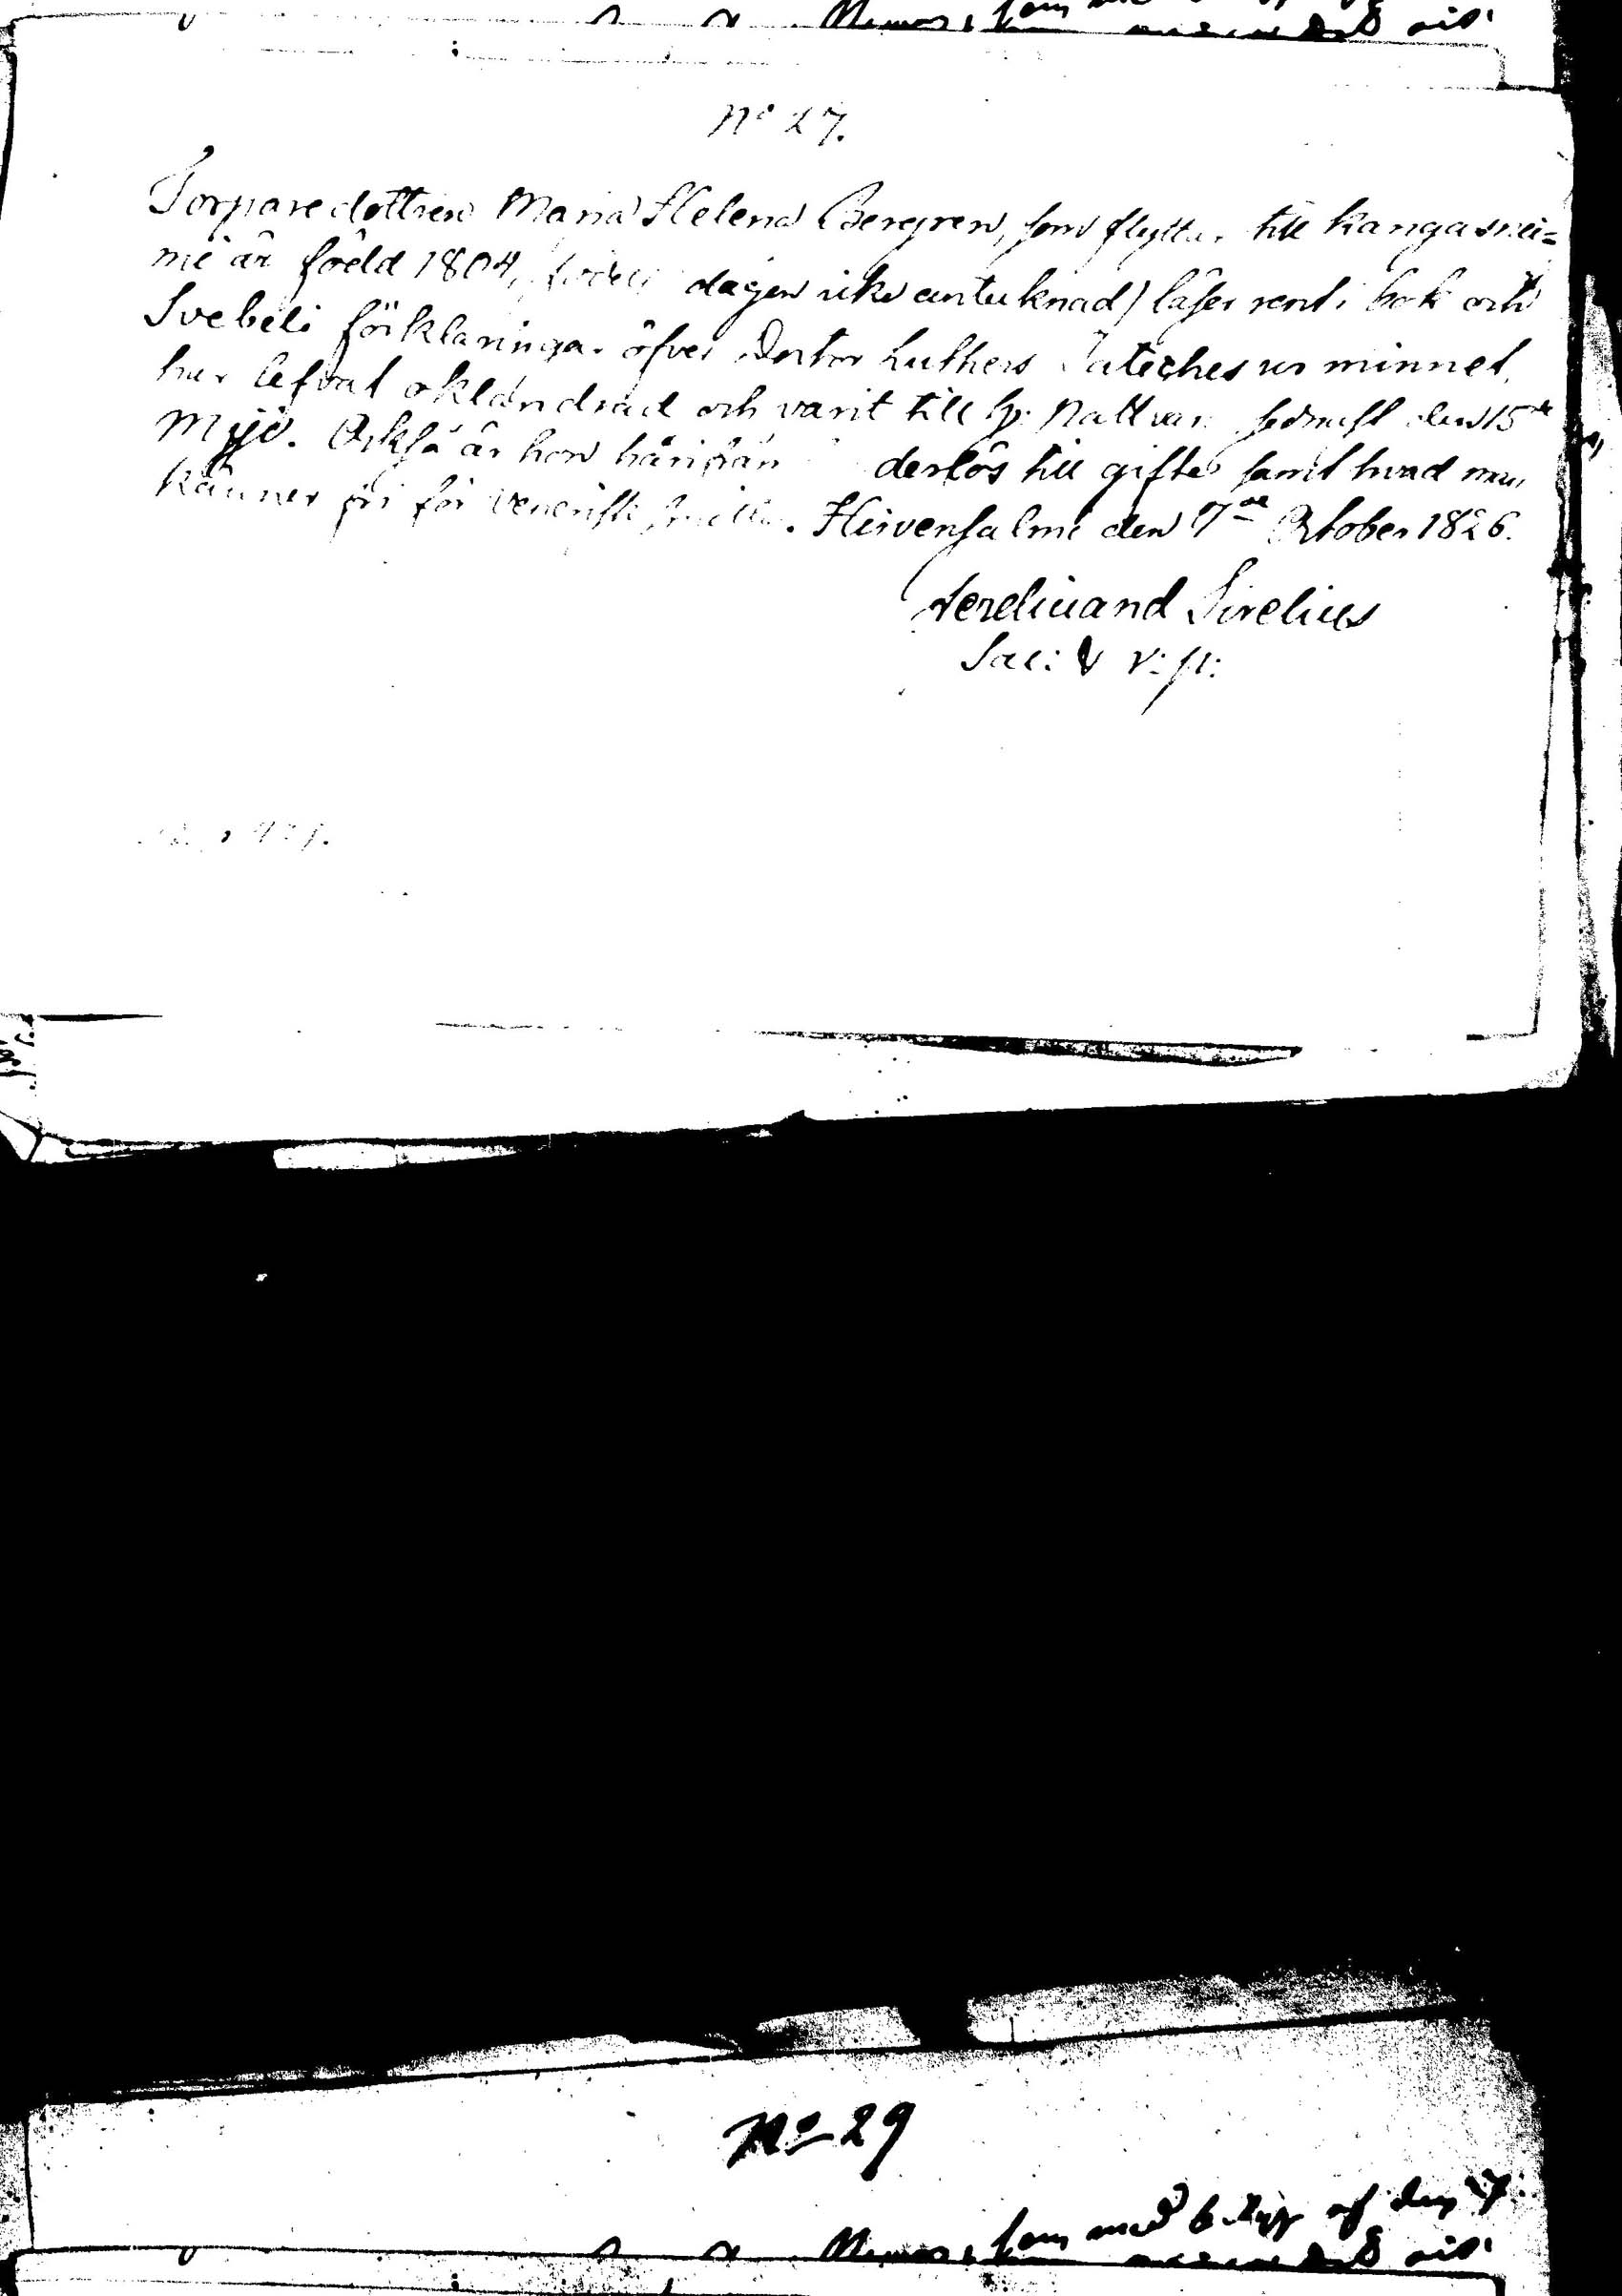 No 27.
Torparedottren Maria Helena Bergren, som flyttar till Kangasnie=
mi är född 1804, födelsedagen icke antecknad) läser rent i bok och
Svebelii förklaringar öfver Doctor Luthers Cateches ur minnet,
har lefvat oklandrad och varit till h. Nattvard sednast den 15de
Maji. Också är hon härifrån derlös till gifte samt hvad man
känner fri för venerisk smitta. Hirvensalmi den 7de October 1826.
Ferdinand Sirelius
Sac: V v: p:
No 29
som med af den 7